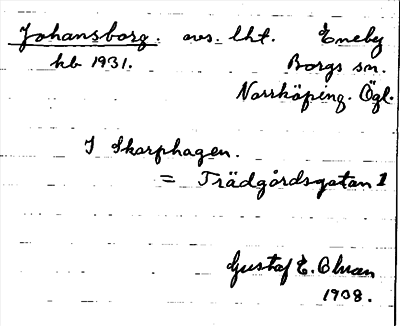 Johansborg. avs. lht. Eneby
hb 1931. Borgs sn.
Norrköping. Ögl.
I Skarphagen.
= Trädgårdsgatan 1
Gustaf E. Ohman
1938.